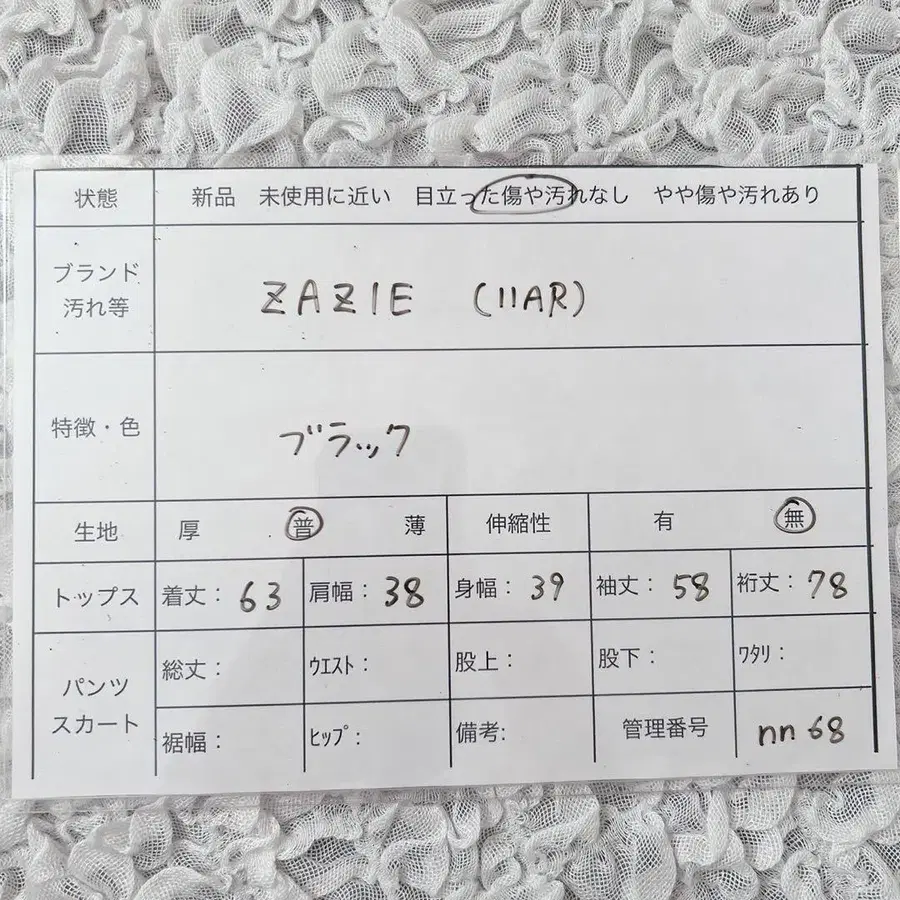 状態 新品 未使用に近い 目立った傷や汚れなし やや傷や汚れあり
ブランド
汚れ等
ZAZIE (11AR)
特徴・色
ブラック
生地 厚 普 薄 伸縮性 有 無
トップス 着丈: 63 肩幅: 38 身幅: 39 袖丈: 58 裄丈: 78
パンツ
スカート
総丈: ウエスト: 股上: 股下: ワタリ:
裾幅: ヒップ: 備考: 管理番号 nn 68